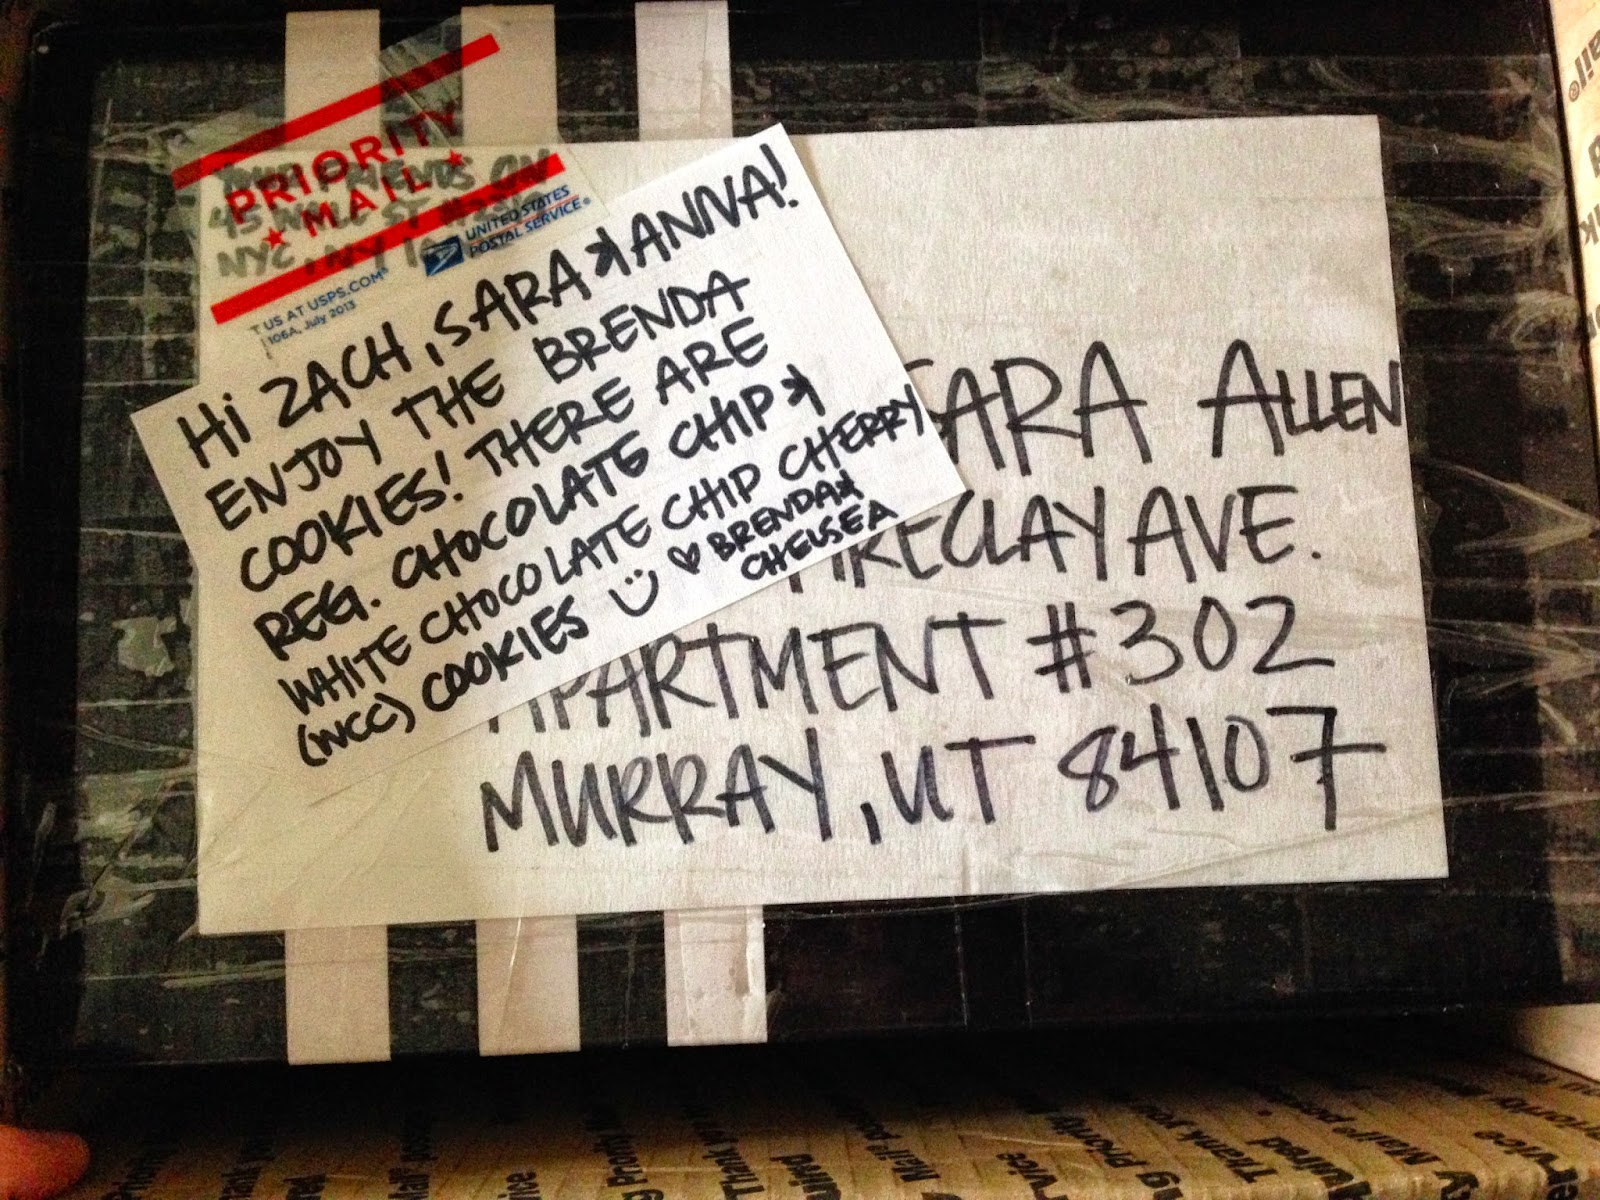 PRIORITY
★ MAIL ★
YOUR FRIENDS ON
45 WALL ST
NYC, NY
UNITED STATES
POSTAL SERVICE®
T US AT USPS.COM®
106A, July 2013
Hi ZACH, SARA & ANNA!
ENJOY THE BRENDA
COOKIES! THERE ARE
REG. CHOCOLATE CHIP &
WHITE CHOCOLATE CHIP CHERRY
(WCC) COOKIES ☺ ♡ BRENDA &
CHELSEA
SARA ALLEN
FIRECLAY AVE.
APARTMENT #302
MURRAY, UT 84107